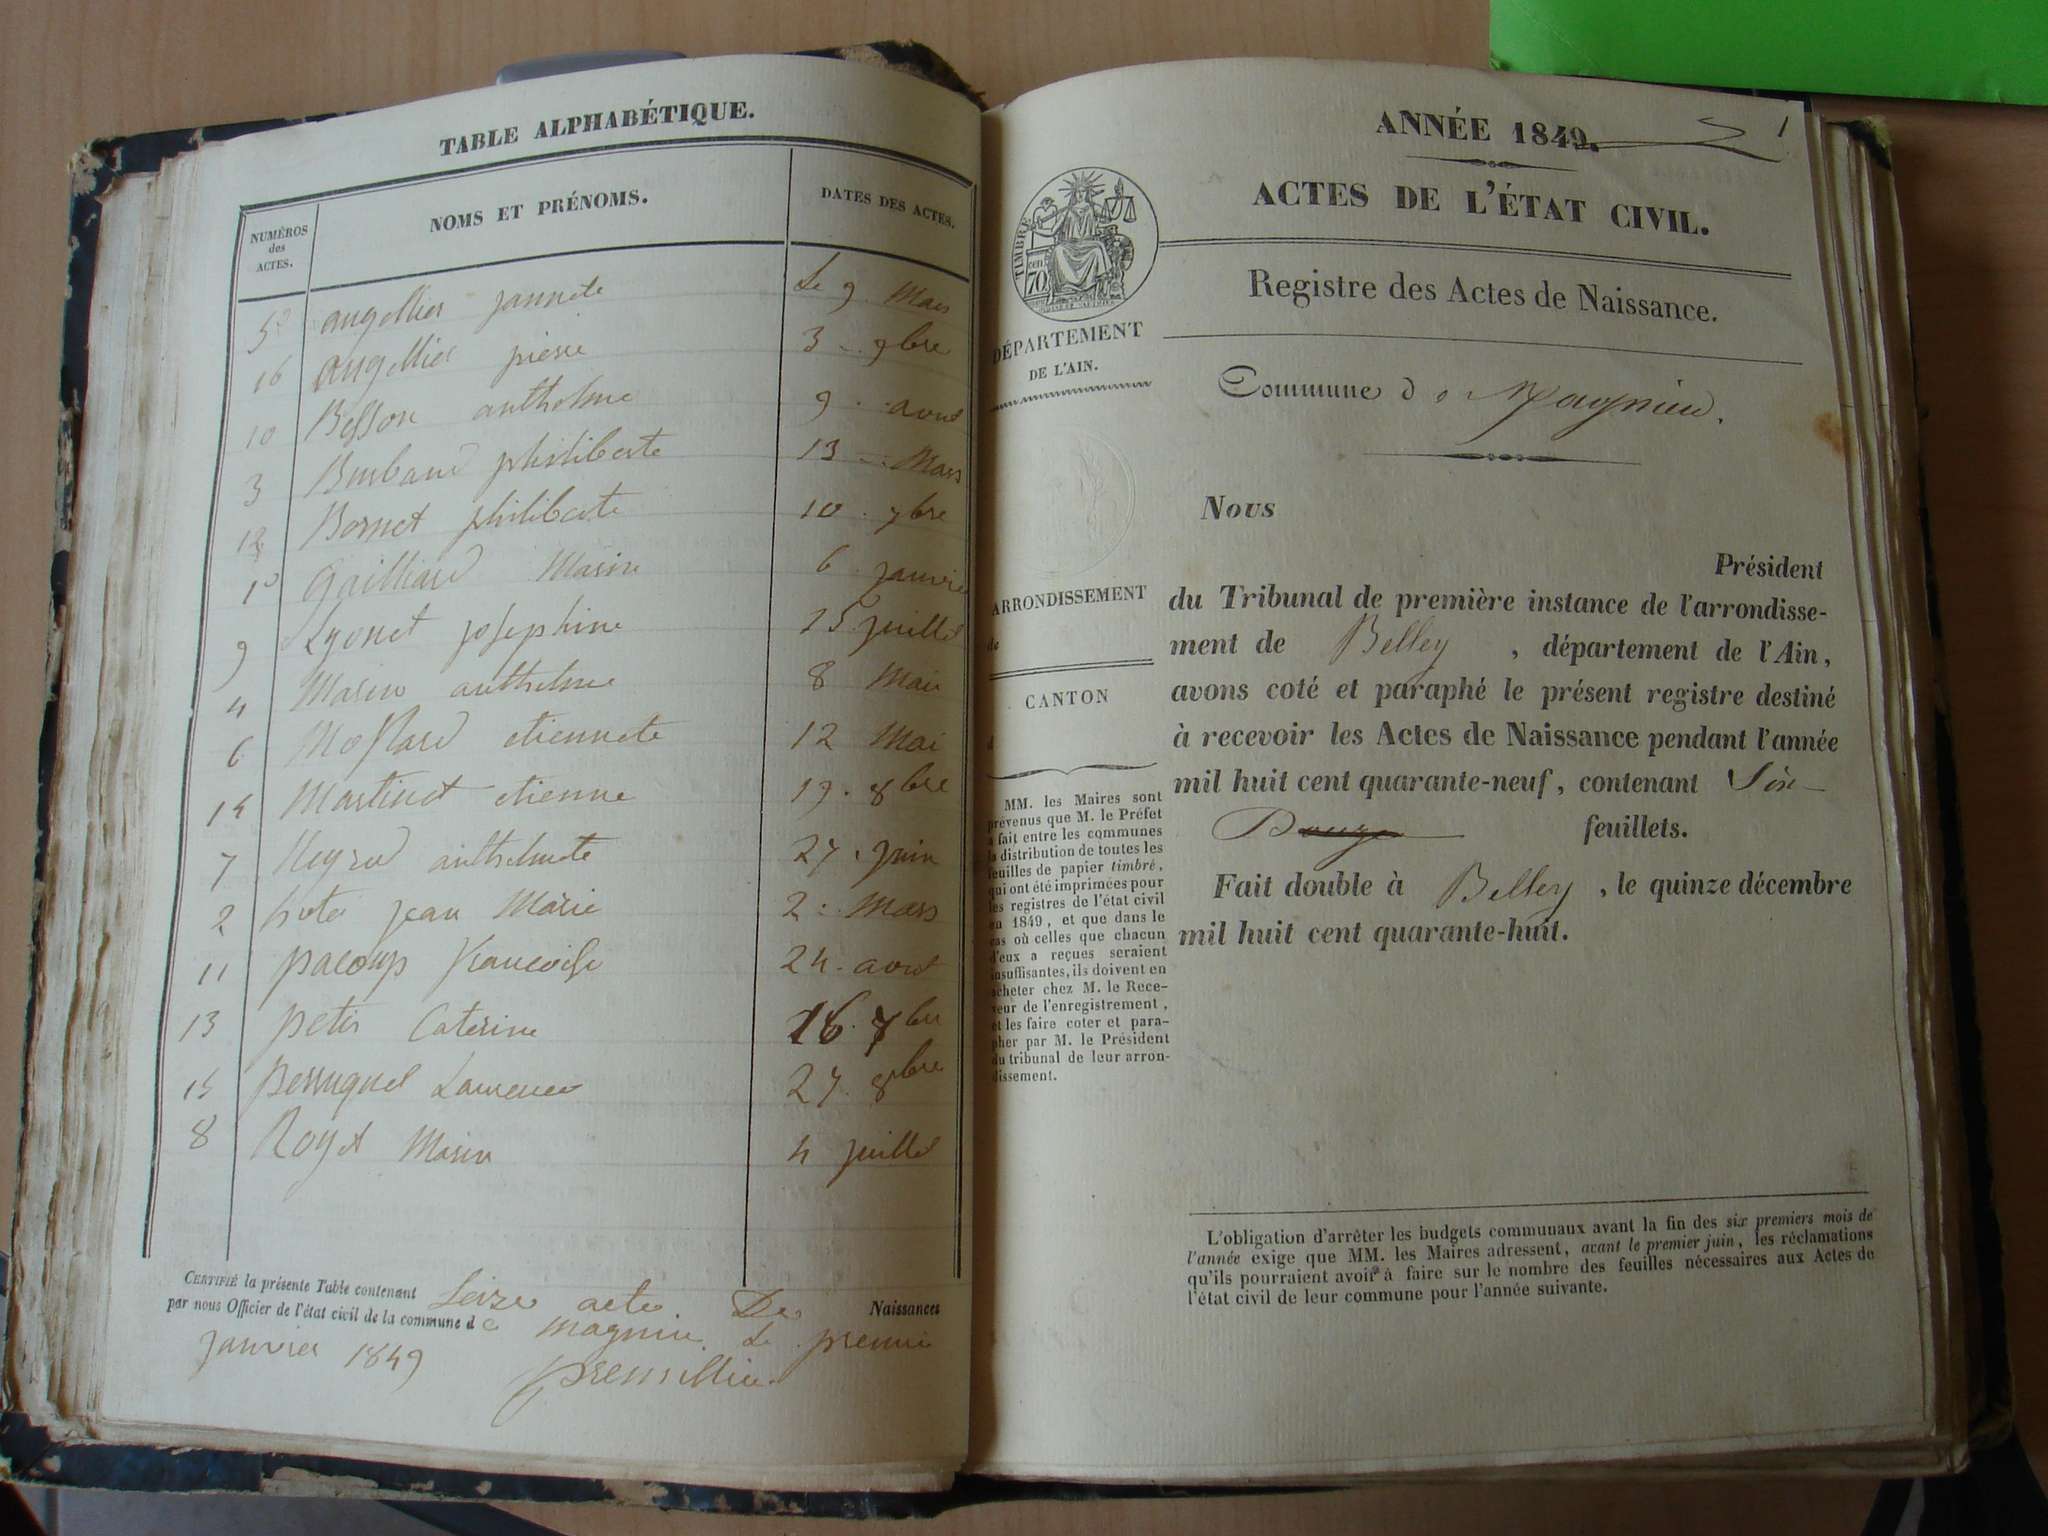 TABLE ALPHABÉTIQUE.
NUMÉROS des ACTES. NOMS ET PRÉNOMS. DATES DES ACTES.
5 angellier jannete Le 9 Mars
16 angellier pierre 3 9bre
10 Besson anthelme 9 avril
3 philiberte 13 Mars
12 Bornet philiberte 10 7bre
1 Gailliard Marie 6 janvier
9 Lyonet josephine 15 juillet
4 Marin anthelme 8 Mai
6 Mollard etiennete 12 Mai
14 Martinet etienne 19 8bre
7 anthelmete 27 juin
2 jean Marie 2 Mars
11 pacoup francoise 24 avril
13 petit Caterine 16 7bre
15 perruquet Laurence 27 8bre
8 Royet Marie 4 juillet
CERTIFIÉ la présente Table contenant Seize acte De Naissances
par nous Officier de l'état civil de la commune de magnieu Le premie
janvier 1849
ANNÉE 1849. 1
ACTES DE L'ÉTAT CIVIL.
Registre des Actes de Naissance.
TIMBRE
cen. 70
DÉPARTEMENT
DE L'AIN.
Commune de Magnieu.
ARRONDISSEMENT
de
CANTON
d
MM. les Maires sont
prévenus que M. le Préfet
a fait entre les communes
la distribution de toutes les
feuilles de papier timbré,
qui ont été imprimées pour
les registres de l'état civil
en 1849, et que dans le
cas où celles que chacun
d'eux a reçues seraient
insuffisantes, ils doivent en
acheter chez M. le Rece-
veur de l'enregistrement,
et les faire coter et para-
pher par M. le Président
du tribunal de leur arron-
dissement.
Nous
Président
du Tribunal de première instance de l'arrondisse-
ment de Belley, département de l'Ain,
avons coté et paraphé le présent registre destiné
à recevoir les Actes de Naissance pendant l'année
mil huit cent quarante-neuf, contenant Six
Douze feuillets.
Fait double à Belley, le quinze décembre
mil huit cent quarante-huit.
L'obligation d'arrêter les budgets communaux avant la fin des six premiers mois de
l'année exige que MM. les Maires adressent, avant le premier juin, les réclamations
qu'ils pourraient avoir à faire sur le nombre des feuilles nécessaires aux Actes de
l'état civil de leur commune pour l'année suivante.